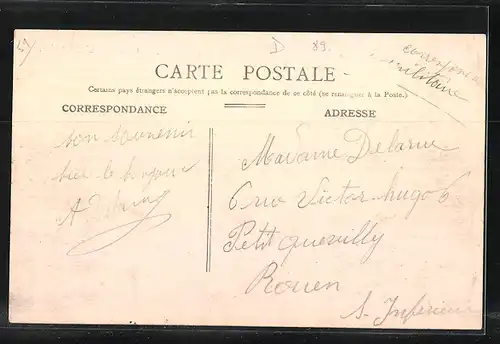 D 89.
correspondance
militaire
CARTE POSTALE
Certains pays étrangers n'acceptent pas la correspondance de ce côté (se renseigner à la Poste.)
CORRESPONDANCE
ADRESSE
bon souvenir
bien le bonjour
Madame Delarue
6 rue Victor-hugo 6
Petit quevilly
Rouen
S. Inférieure